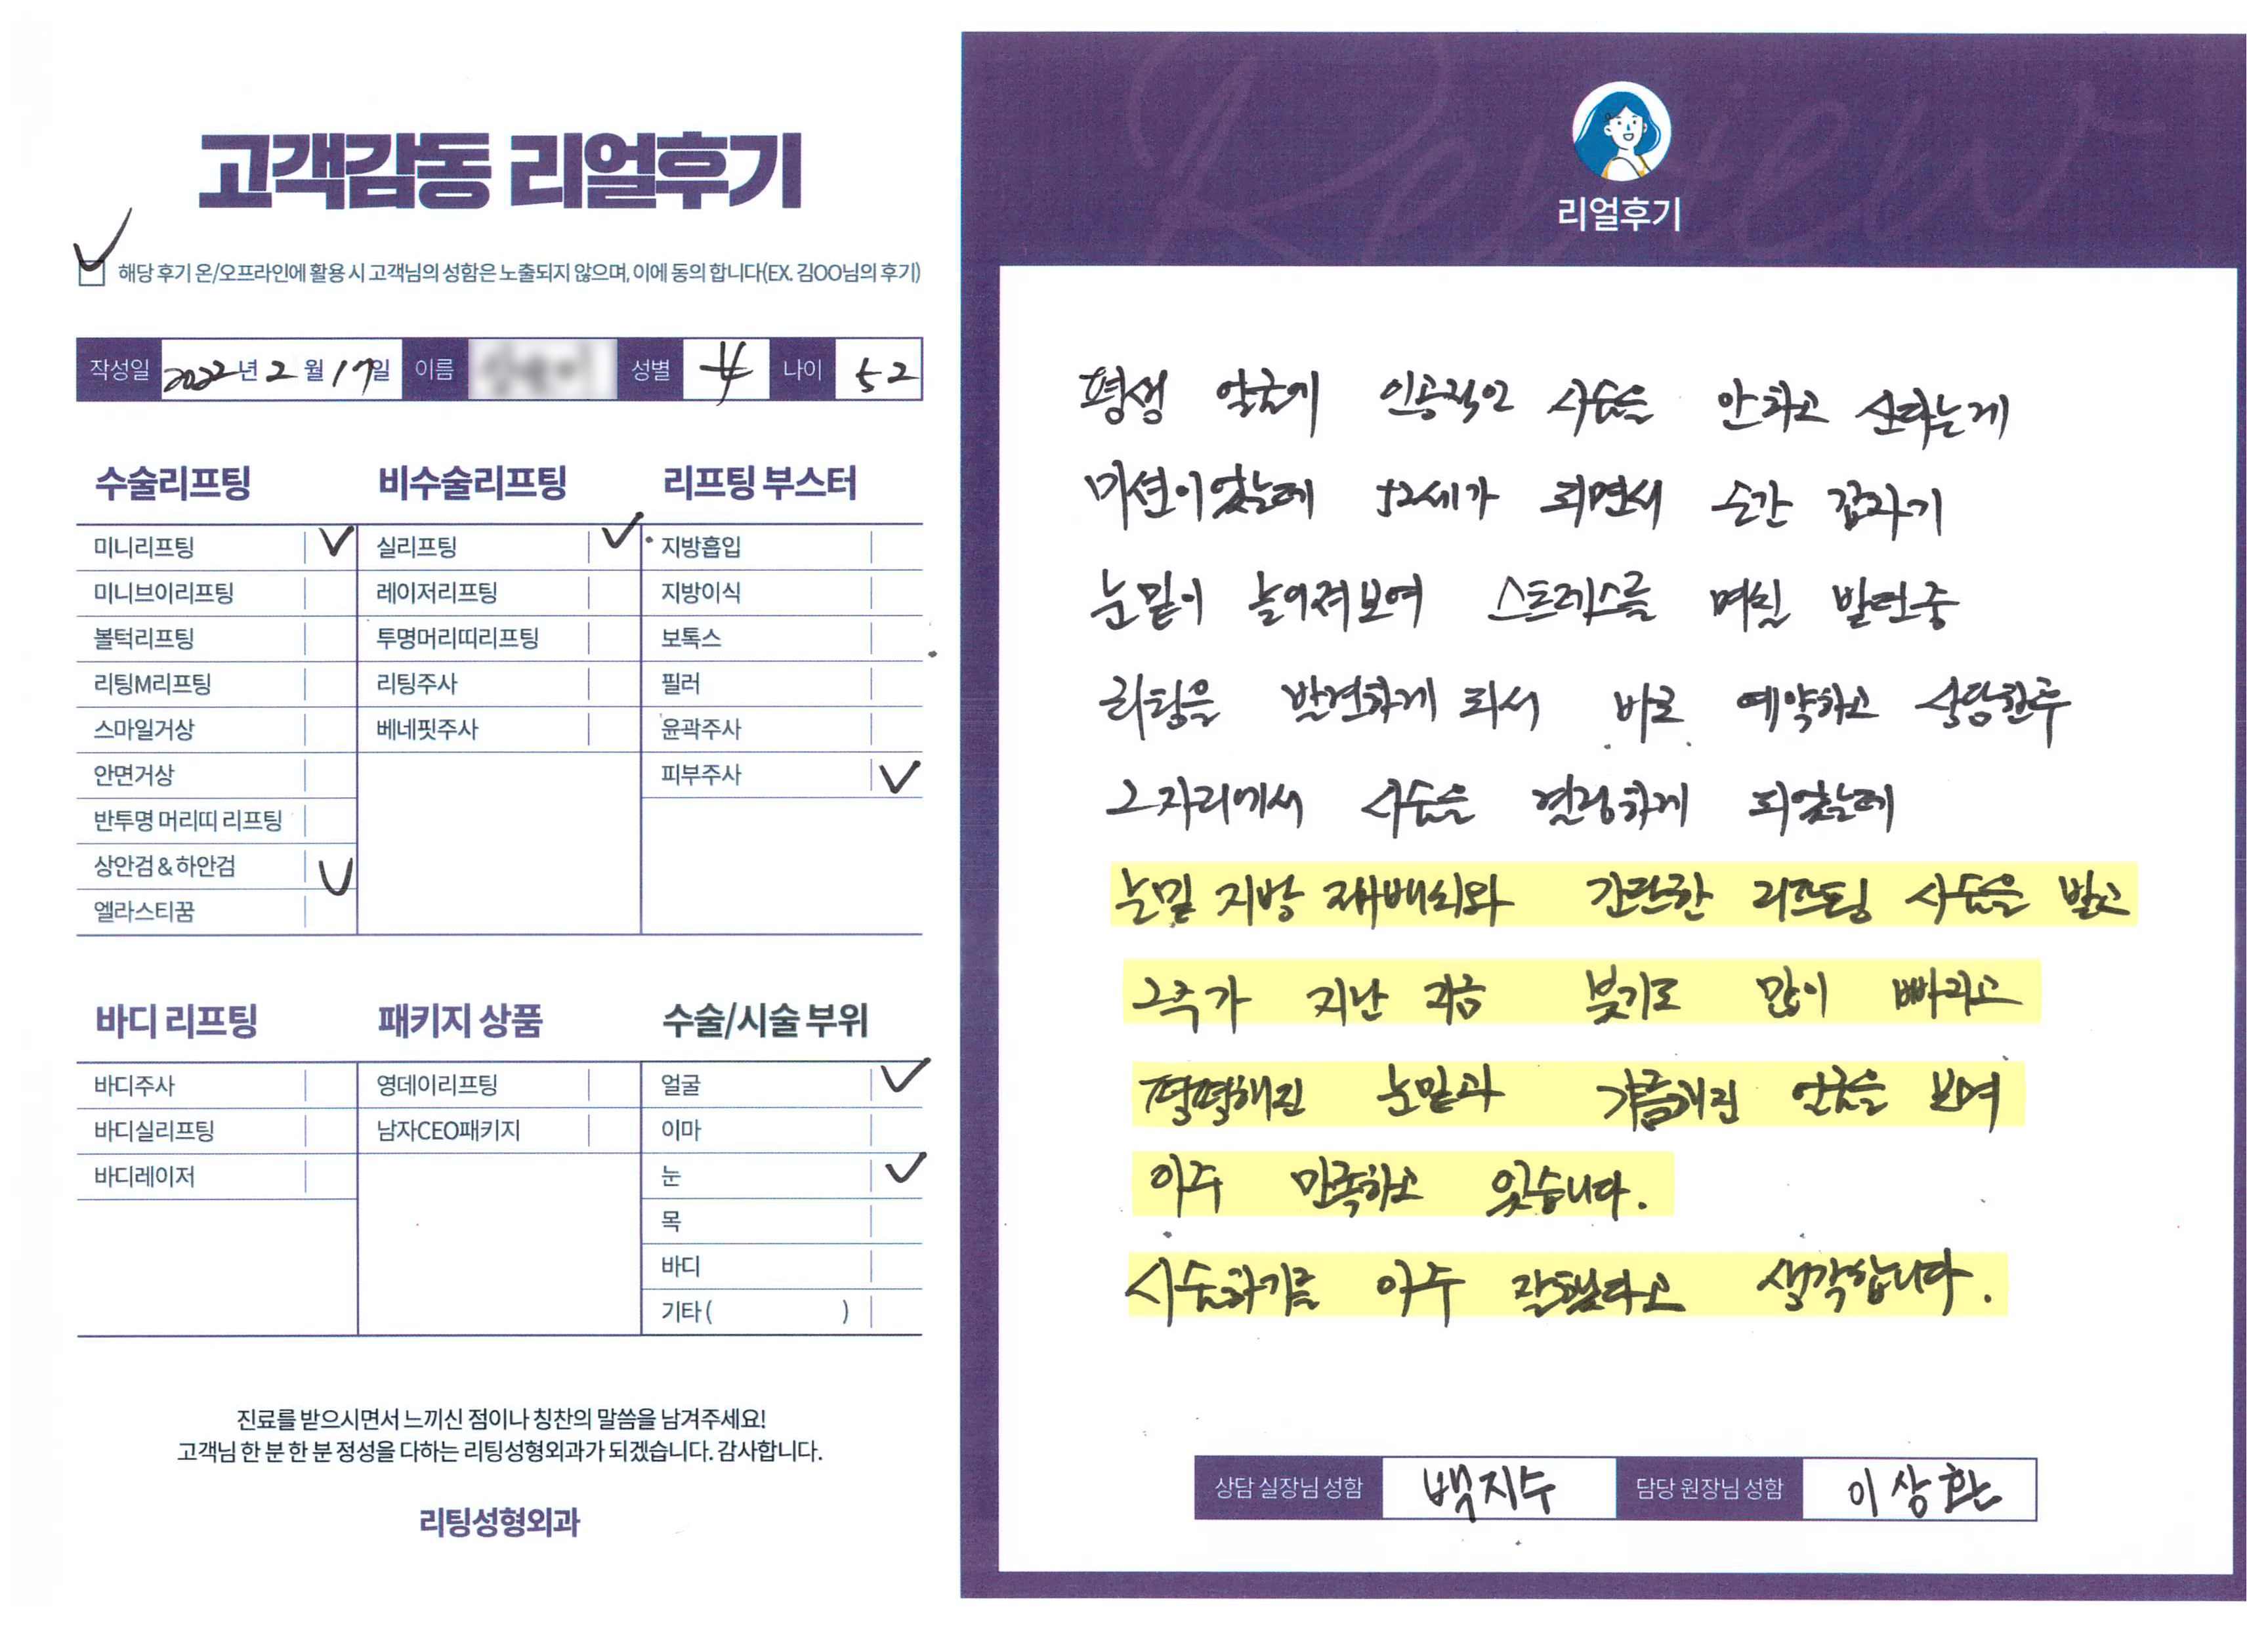 고객감동 리얼후기
해당 후기 온/오프라인에 활용 시 고객님의 성함은 노출되지 않으며, 이에 동의 합니다(EX. 김OO님의 후기)
작성일 2022년 2월 17일 이름 성별 女 나이 52
수술리프팅
미니리프팅
미니브이리프팅
볼턱리프팅
리팅M리프팅
스마일거상
안면거상
반투명 머리띠 리프팅
상안검 & 하안검
엘라스티꿈
비수술리프팅
실리프팅
레이저리프팅
투명머리띠리프팅
리팅주사
베네핏주사
리프팅 부스터
지방흡입
지방이식
보톡스
필러
윤곽주사
피부주사
바디 리프팅
바디주사
바디실리프팅
바디레이저
패키지 상품
영데이리프팅
남자CEO패키지
수술/시술 부위
얼굴
이마
눈
목
바디
기타 ( )
진료를 받으시면서 느끼신 점이나 칭찬의 말씀을 남겨주세요!
고객님 한 분 한 분 정성을 다하는 리팅성형외과가 되겠습니다. 감사합니다.
리팅성형외과
Review
리얼후기
평생 얼굴에 인공적인 시술을 안하고 산다는게
미션이었는데 52세가 되면서 순간 갑자기
눈밑이 늘어져보여 스트레스를 며칠 받던중
리팅을 발견하게 되서 바로 예약하고 상담한후
그자리에서 시술을 결정하게 되었는데
눈밑 지방 재배치와 간단한 리프팅 시술을 받고
2주가 지난 지금 붓기도 많이 빠지고
평평해진 눈밑과 갸름해진 얼굴을 보며
아주 만족하고 있습니다.
시술하기를 아주 잘했다고 생각합니다.
상담 실장님 성함 백지수 담당 원장님 성함 이상환